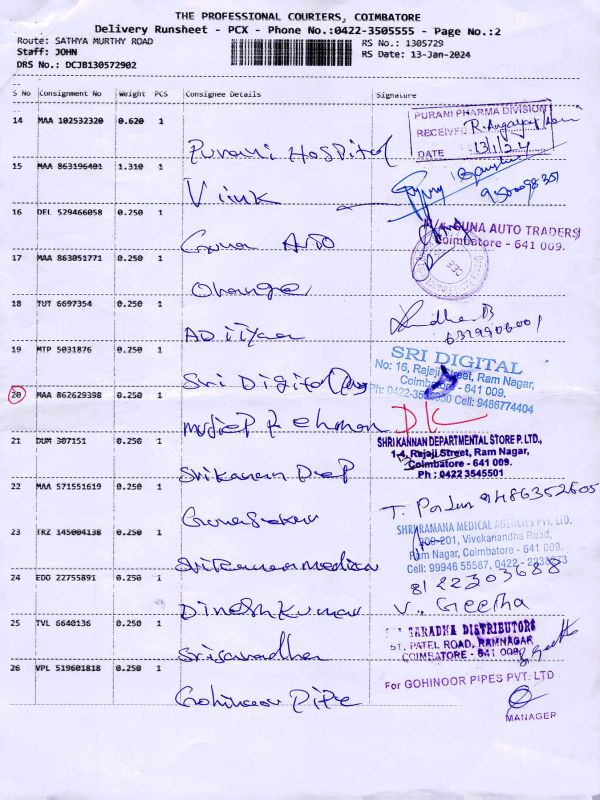 THE PROFESSIONAL COURIERS, COIMBATORE
Delivery Runsheet - PCX - Phone No.:0422-3505555 - Page No.:2
Route: SATHYA MURTHY ROAD
RS No.: 1305729
Staff: JOHN
RS Date: 13-Jan-2024
DRS No.: DCJB130572902
S No Consignment No Weight PCS Consignee Details Signature
14 MAA 102532320 0.620 1
PURANI PHARMA DIVISION
RECEIVED
DATE 13/1/24
Purani Hospital
15 MAA 863196401 1.310 1
Vimk
16 DEL 529466058 0.250 1
GUNA AUTO TRADERS
Coimbatore - 641 009.
Guna Auto
17 MAA 863051771 0.250 1
Orange
18 TUT 6697354 0.250 1
Sudha B
6329906001
Adityaa
19 MTP 5031876 0.250 1
SRI DIGITAL
No: 16, Rajaji Street, Ram Nagar,
Coimbatore - 641 009.
Cell: 9486774404
Sri Digital
20 MAA 862629398 0.250 1
DK
Rehman
21 DUM 307151 0.250 1
SHRI KANNAN DEPARTMENTAL STORE P. LTD.,
1-4, Rajaji Street, Ram Nagar,
Coimbatore - 641 009.
Ph : 0422 3545501
Srikanan Dep
22 MAA 571551619 0.250 1
9486352605
Gunasekar
23 TRZ 145004138 0.250 1
SHRI RAMANA MEDICAL AGENCIES PVT. LTD.
200-201, Vivekanandha Road,
Ram Nagar, Coimbatore - 641 009.
Cell: 99946 55587, 0422 -
8122303688
medical
24 EDO 22755891 0.250 1
V. Geetha
Dineshkumar
25 TVL 6640136 0.250 1
SARADHA DISTRIBUTORS
51, PATEL ROAD, RAMNAGAR
COIMBATORE - 641 009
Srisaradha
26 VPL 519601818 0.250 1
For GOHINOOR PIPES PVT. LTD
Gohinoor Pipe
MANAGER